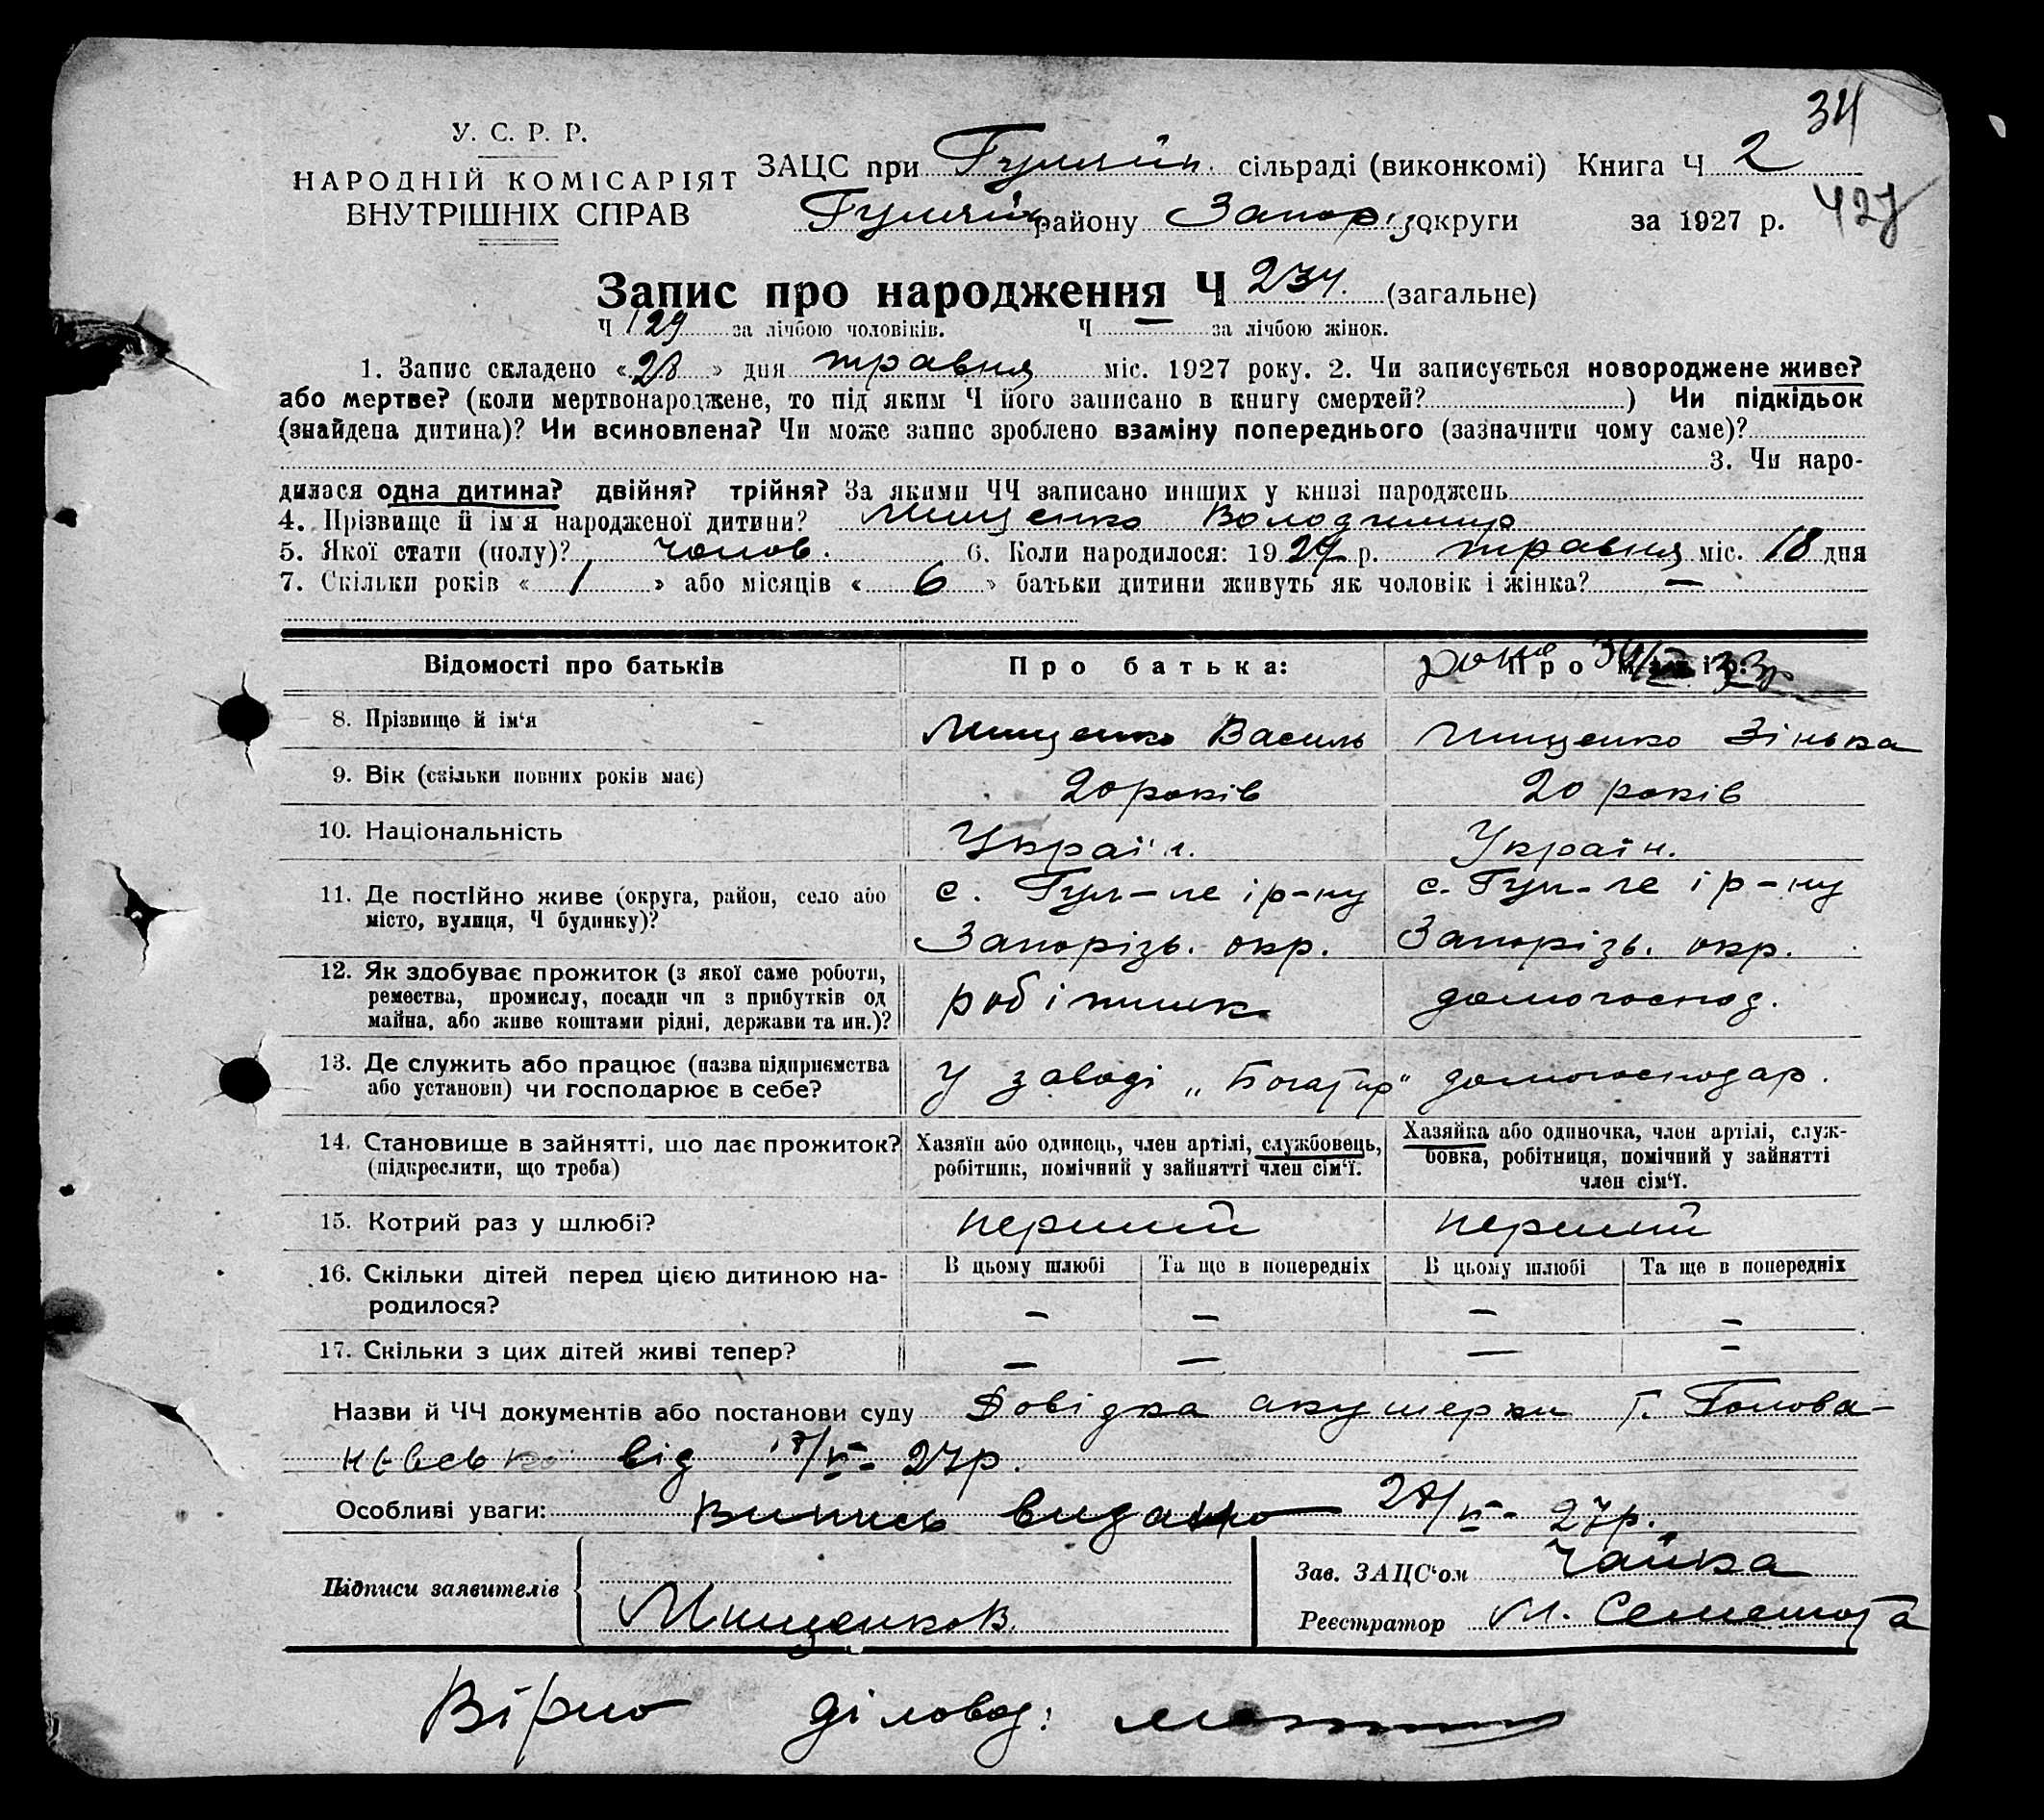 34
У. С. Р. Р.
НАРОДНІЙ КОМІСАРІЯТ
ВНУТРІШНІХ СПРАВ
ЗАЦС при Гуляйп. сільраді (виконкомі) Книга Ч 2
Гуляйп району Запоріз округи за 1927 р. 427
Запис про народження Ч 234. (загальне)
Ч 129 за лічбою чоловіків. Ч — за лічбою жінок.
1. Запис складено «28» дня травня міс. 1927 року. 2. Чи записується новороджене живе?
або мертве? (коли мертвонароджене, то під яким Ч його записано в книгу смертей?) Чи підкідьок
(знайдена дитина)? Чи всиновлена? Чи може запис зроблено взаміну попереднього (зазначити чому саме)?
3. Чи наро-
дилася одна дитина? двійня? трійня? За якими ЧЧ записано инших у книзі народжень
4. Прізвище й ім'я народженої дитини? Мищенко Володимир
5. Якої стати (полу)? чолов. 6. Коли народилося: 1927 р. травня міс. 18 дня
7. Скільки років «1» або місяців «6» батьки дитини живуть як чоловік і жінка? —
Відомості про батьків Про батька: Про матір:
8. Прізвище й ім'я Мищенко Василь Мищенко Зінька
9. Вік (скільки повних років має) 20 років 20 років
10. Національність Україн. Україн.
11. Де постійно живе (округа, район, село або с. Гул-ле і р-ну с. Гул-ле і р-ну
місто, вулиця, Ч будинку)? Запорізь. окр. Запорізь. окр.
12. Як здобуває прожиток (з якої саме роботи,
ремества, промислу, посади чи з прибутків од робітник домогоспод.
майна, або живе коштами рідні, держави та ин.)?
13. Де служить або працює (назва підприємства У заводі „Богатир" домогосподар.
або установи) чи господарює в себе?
14. Становище в зайнятті, що дає прожиток? Хазяїн або одинець, член артілі, службовець, Хазяйка або одиночка, член артілі, служ-
(підкреслити, що треба) робітник, помічний у зайнятті член сім'ї. бовка, робітниця, помічний у зайнятті
член сім'ї.
15. Котрий раз у шлюбі? перший перший
16. Скільки дітей перед цією дитиною на- В цьому шлюбі Та ще в попередніх В цьому шлюбі Та ще в попередніх
родилося? — — — —
17. Скільки з цих дітей живі тепер? — — — —
Назви й ЧЧ документів або постанови суду Довідка акушерки Г. Голова-
від /V- 27р.
Особливі уваги: Випись видано 28/V- 27р.
Підписи заявителів Мищенко В. Зав. ЗАЦС'ом Чайка
Реєстратор
Вірно діловод: